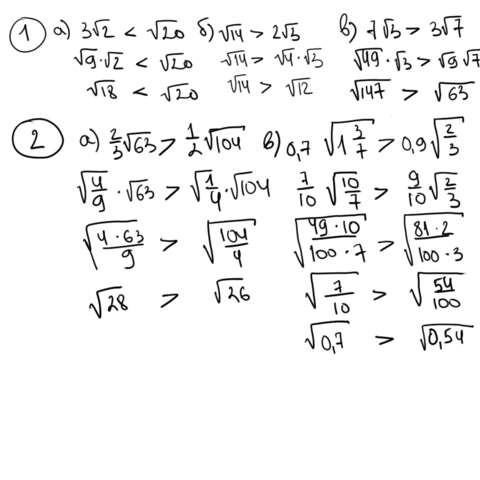 ① а) 3√2 < √20 б) √14 > 2√3 в) 7√3 > 3√7
√9·√2 < √20 √14 > √4·√3 √49·√3 > √9√7
√18 < √20 √14 > √12 √147 > √63
② а) 2/3√63 > 1/2√104 в) 0,7√(1 3/7) > 0,9√(2/3)
√(4/9)·√63 > √(1/4)·√104 7/10√(10/7) > 9/10√(2/3)
√(4·63/9) > √(104/4) √(49·10/100·7) > √(81·2/100·3)
√28 > √26 √(7/10) > √(54/100)
√0,7 > √0,54